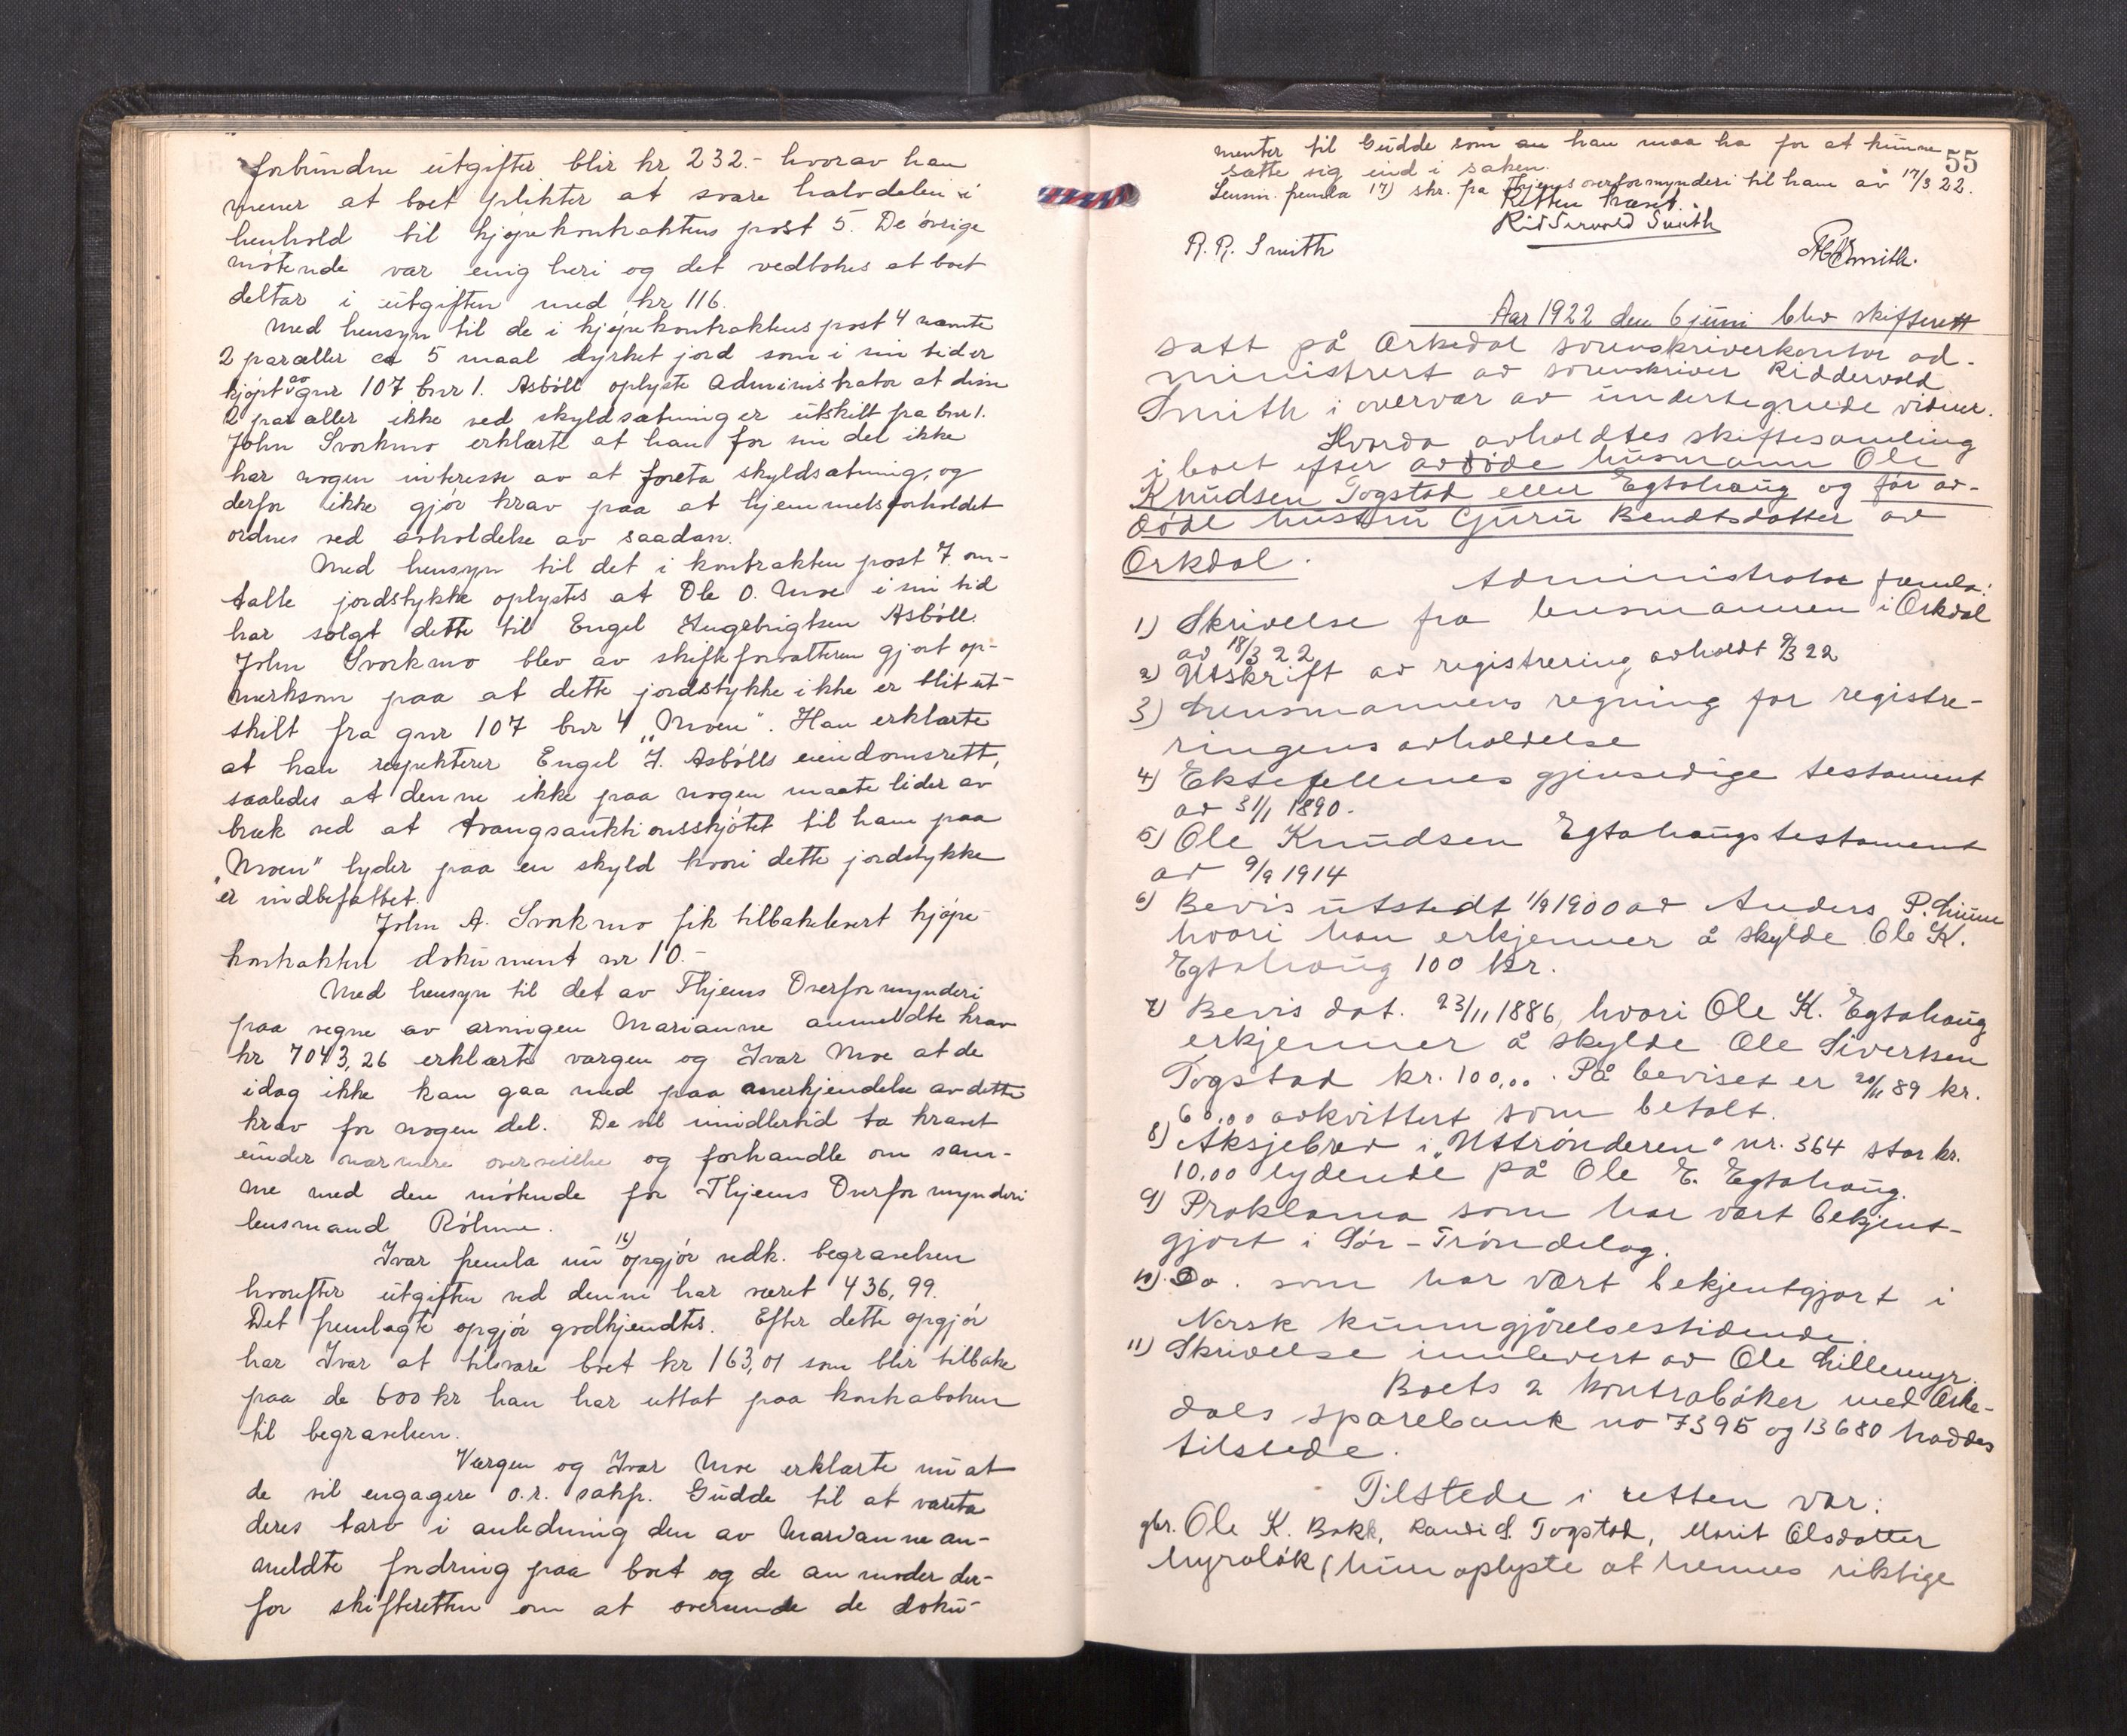 forbundne utgifter blir kr 232.- hvorav han
mener at boet plikter at svare halvdelen i
henhold til kjøpekontraktens post 5. De øvrige
møtende var enig heri og det vedtokes at boet
deltar i utgiften med kr 116.
Med hensyn til de i kjøpekontraktens post 4 nævnte
2 paræller ca 5 maal dyrket jord som i sin tid er
kjøpt av gnr 107 bnr 1. Asbøll oplyste Administrator at disse
2 paræller ikke ved skyldsætning er utskilt fra bnr 1.
John Svorkmo erklærte at han for sin del ikke
har nogen interesse av at foreta skyldsætning, og
derfor ikke gjør krav paa at hjemmelsforholdet
ordnes ved avholdelse av saadan.
Med hensyn til det i kontrakten post 7. om-
talte jordstykke oplystes at Ole O. Moe i sin tid
har solgt dette til Engel Ingebrigtsen Asbøll.
John Svorkmo blev av skifteforvalteren gjort op-
merksom paa at dette jordstykke ikke er blit ut-
skilt fra gnr 107 bnr 4 „Moen". Han erklærte
at han respekterer Engel I. Asbølls eiendomsrett,
saaledes at denne ikke paa nogen maate lider av
bræk ved at tvangsauktionsskjøtet til ham paa
„Moen" lyder paa en skyld hvori dette jordstykke
er indbefattet.
John A. Svorkmo fik tilbakelevert kjøpe-
kontrakten dokument nr 10.-
Med hensyn til det av Thjems Overformynderi
paa vegne av arvingen Marianne anmeldte krav
kr 7043,26 erklærte værgen og Ivar Moe at de
idag ikke kan gaa med paa anerkjendelse av dette
krav for nogen del. De vil imidlertid ta kravet
under nærmere overveielse og forhandle om sam-
me med den møtende for Thjems Overformynderi
lensmand Röhme.
Ivar fremla nu 16) opgjør vedk. begravelsen
hvorefter utgiften ved denne har været 436,99.
Det fremlagte opgjør godkjendtes. Efter dette opgjør
har Ivar at tilsvare boet kr 163,01 som blir tilbake
paa de 600 kr han har uttat paa kontraboken
til begravelsen.
Værgen og Ivar Moe erklærte nu at
de vil engagere o.r. sakf. Gudde til at vareta
deres tarv i anledning den av Marianne an-
meldte fordring paa boet og de anmoder der-
for skifteretten om at oversende de doku-
55
menter til Gudde som han maa ha for at kunne
sætte sig ind i saken.
Lensm. fremla 17) skr. fra Thjems overformynderi til ham av 17/3 22.
Retten hævet.
Ridderwold Smith
R. R. Smith
Aar 1922 den 6 juni blev skifterett
satt på Orkedal sorenskriverkontor ad-
ministrert av sorenskriver Ridderwold
Smith i overvær av undertegnede vidner.
Hvorda avholdtes skiftesamling
i boet efter avdøde husmann Ole
Knudsen Togstad eller Egtahaug og før av-
døde hustru Guru Bendtsdatter av
Orkdal.
Administrator fremla:
1) Skrivelse fra lensmannen i Orkdal
av 18/3 22
2) Utskrift av registrering avholdt 9/3 22
3) Lensmannens regning for registre-
ringens avholdelse
4) Ektefellenes gjensidige testament
av 31/1 1890.
5) Ole Knudsen Egtahaugs testament
av 9/9 1914
6) Bevis utstedt 1/9 1900 av Anders P.
hvori han erkjenner å skylde Ole K.
Egtahaug 100 kr.
7) Bevis dat. 23/11 1886, hvori Ole K. Egtahaug
erkjenner å skylde Ole Sivertsen
Togstad kr. 100,00. På beviset er 20/11 89 kr.
60,00 avkvittert som betalt.
8) Aksjebrev i „Uttrønderen" nr. 364 stor kr.
10,00 lydende på Ole E. Egtahaug.
9) Proklama som har vært bekjent-
gjort i Sør-Trøndelag.
10) Do. som har vært bekjentgjort i
Norsk kunngjørelsestidende.
11) Skrivelse innlevert av Ole Lillemyr.
Boets 2 kontrabøker med Orke-
dals sparebank no 7395 og 13680 haddes
tilstede.
Tilstede i retten var:
gbr. Ole K. Bakk, Randi S. Togstad, Marit Olsdatter
Myraløk (hun oplyste at hennes riktige